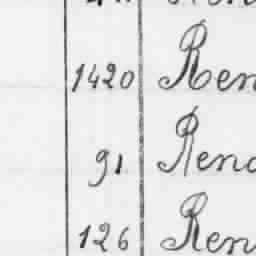 1420 Ren
91 Rena
126 Ren